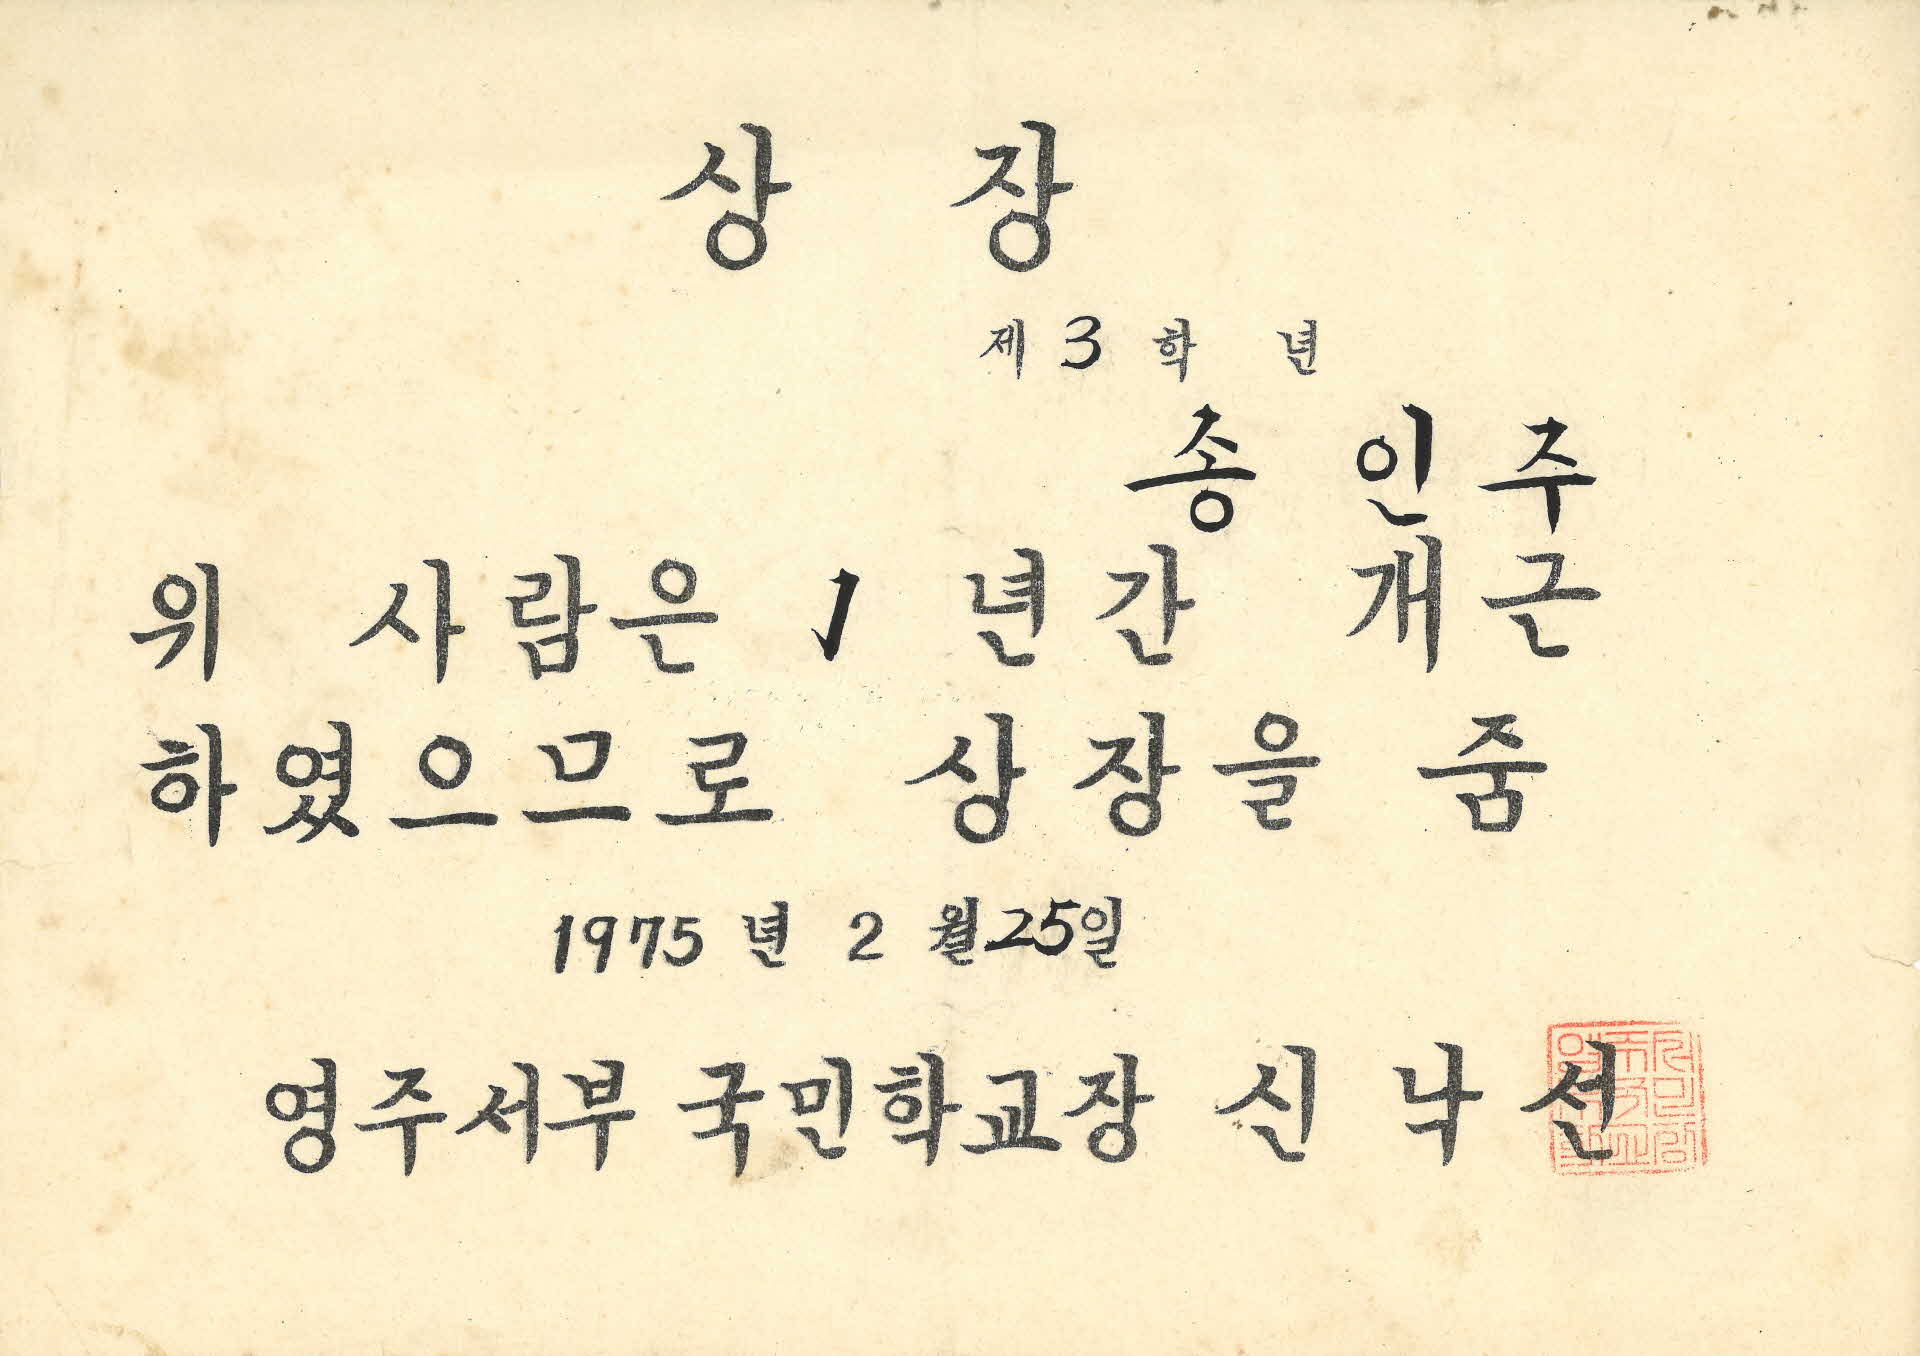 상 장
제 3 학 년
송 인 주
위 사람은 1 년간 개근
하였으므로 상장을 줌
1975 년 2 월 25일
영주서부 국민학교장 신 낙 선